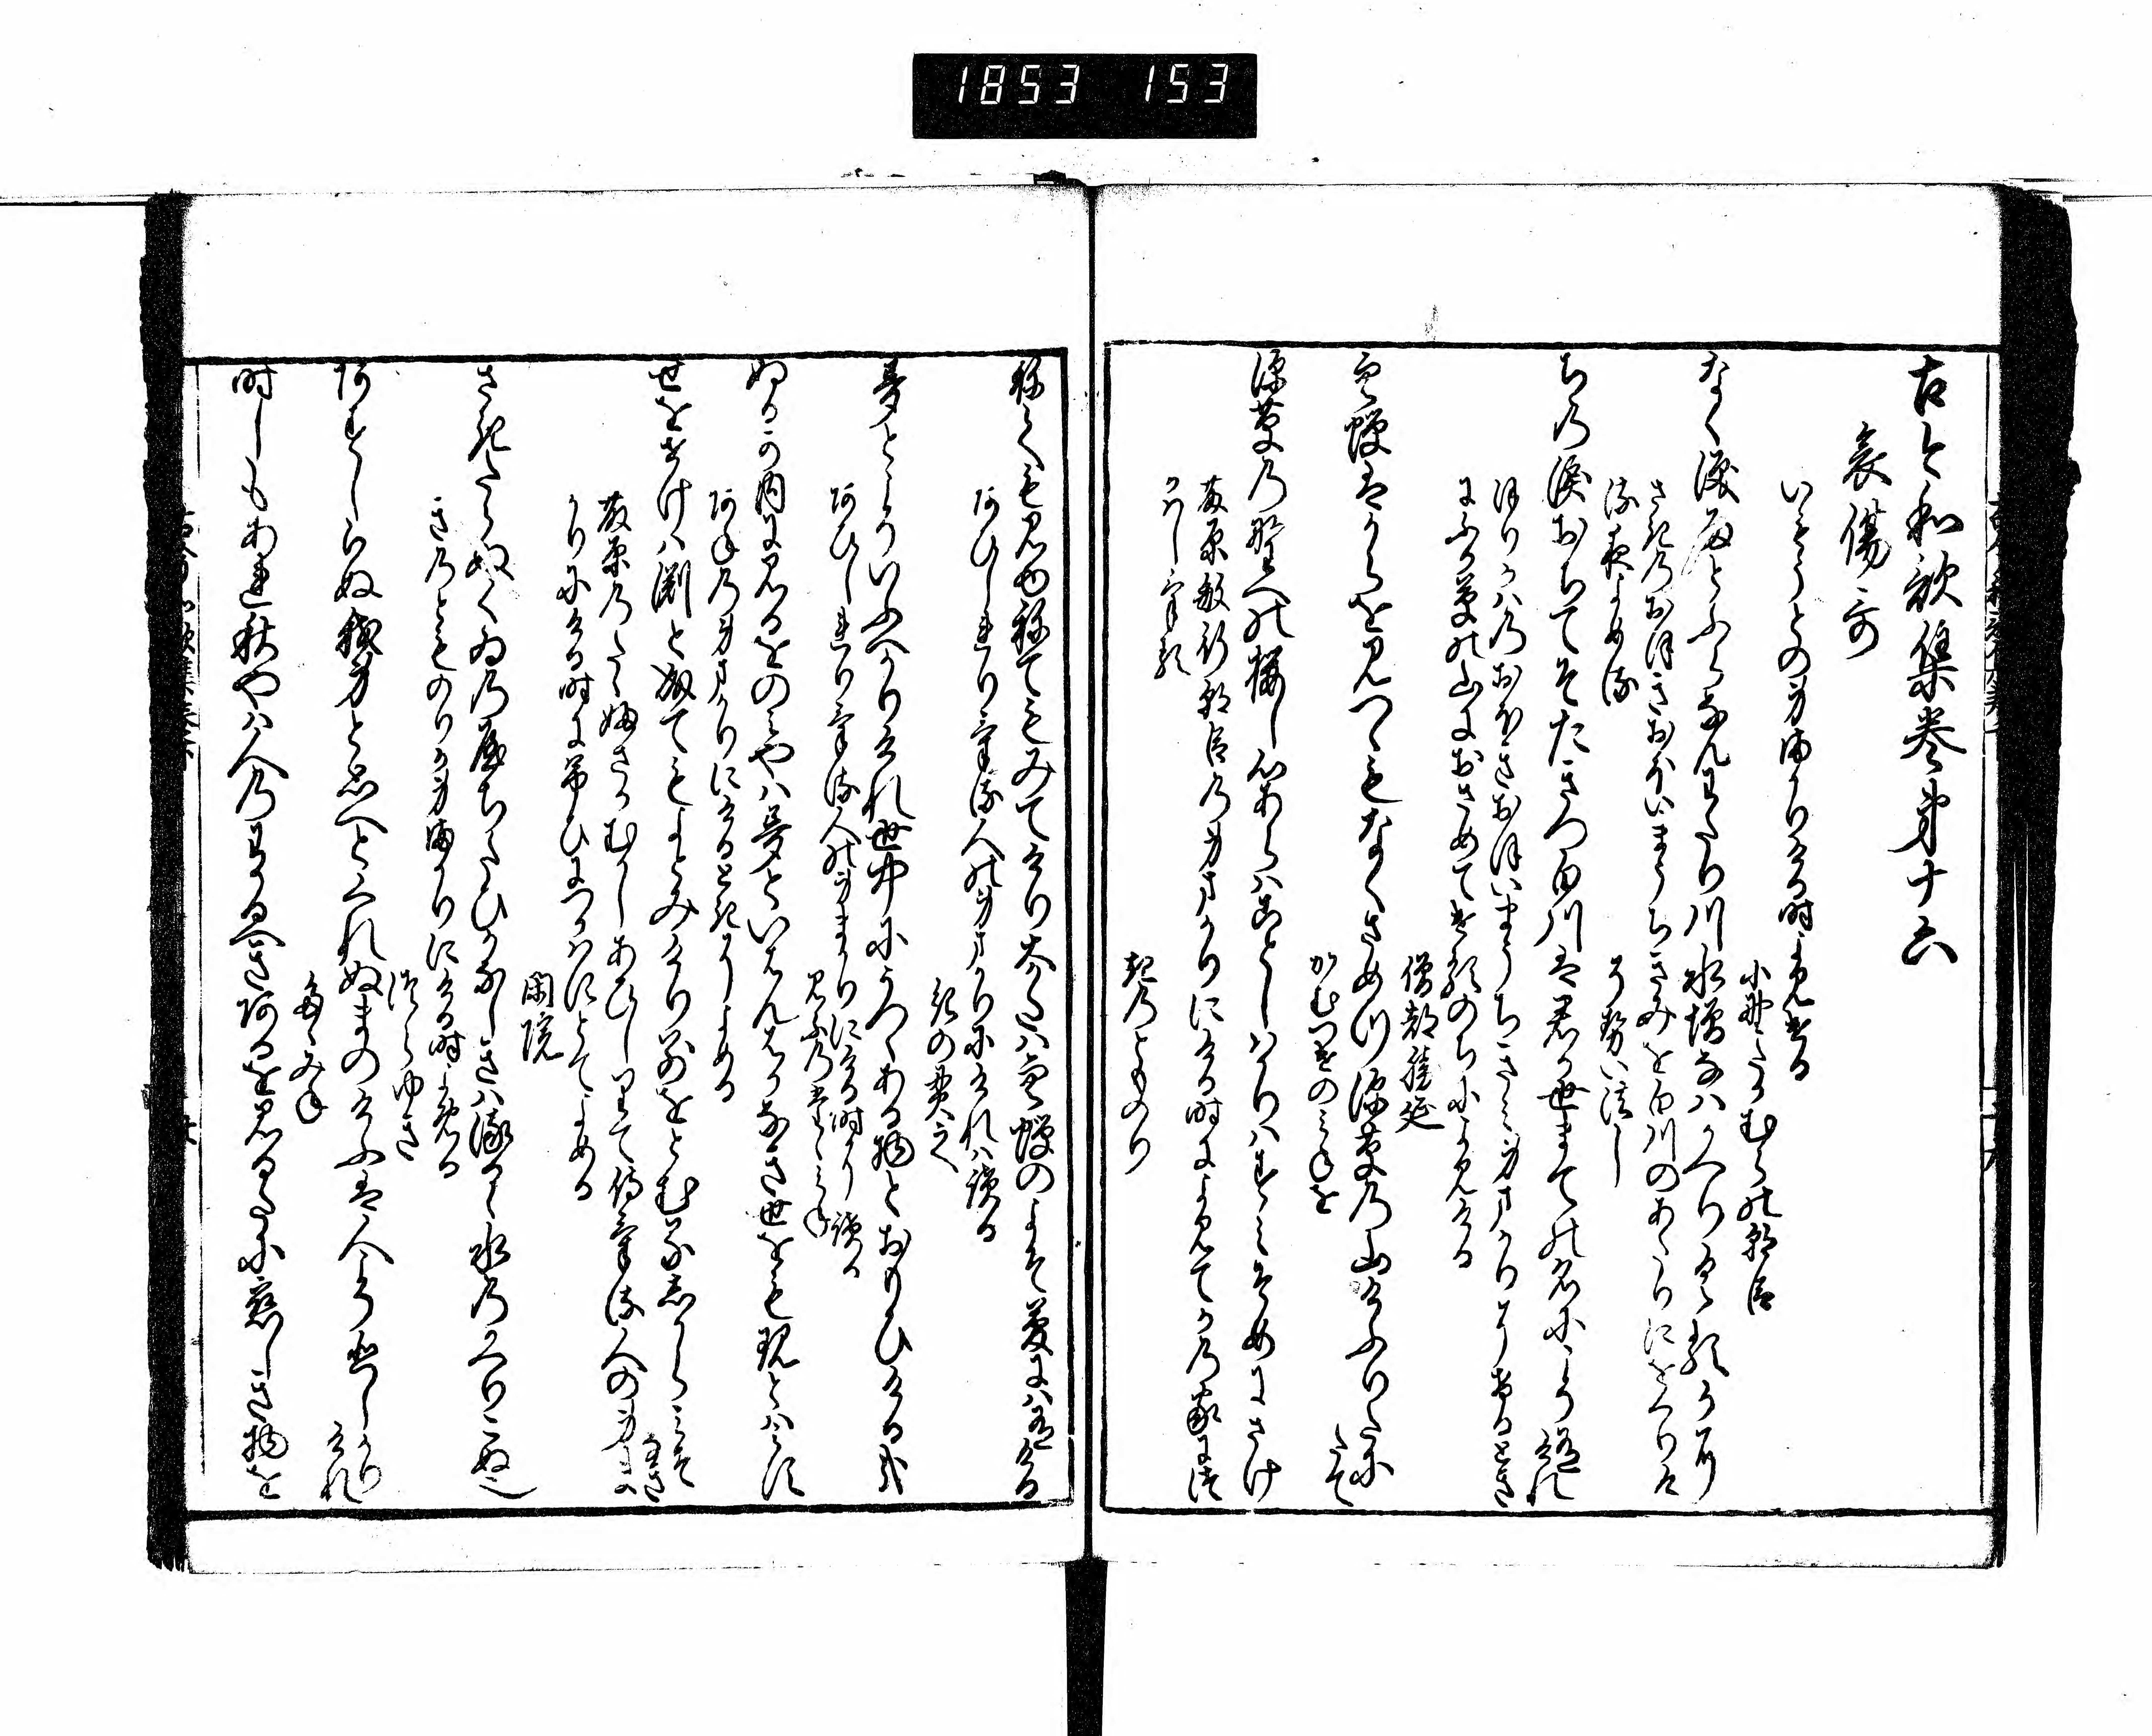 1853 153
古今和歌集巻第十六
哀傷哥
いもうとの身まかりける時よめる
小野たかむらの朝臣
なく涙雨とふらなんわたり川水増なはかへりくるかに
さきのおほきおほいまうちきみを白川のあたりにをくりけ
る夜よめる
そせい法し
ちの涙おちてそたきつ白川は君か世まての名にこそ有けれ
ほりかはのおほきおほいまうちきみ身まかりにけるとき
にふか草の山におさめてけるのちによみける
僧都勝延
空蝉はからを見つゝもなくさめつ深草の山けふりたに
たて
かむつけのみねを
深草の野への桜し心あらはことしはかりはすみそめにさけ
藤原敏行朝臣の身まかりにける時によみてかの家につ
かはしける
紀のとものり
ねても見ゆねてもみてけり大かたは空蝉のよそ夢には有ける
あひしれりける人の身まかりにけれは読る
紀の貫之
夢とこそいふへかりけれ世中にうつゝある物とおもひける哉
あひしれりける人の身まかりにける時に読る
みふのたゝみね
ぬるか内に見るをのみやは夢といはんはかなき世をも現とはみす
あねの身まかりにけるときによめる
せをせけは淵と成てもよとみけり別をとむるしからみそ
なき
藤原のたゝふさかむかしあひしりて侍ける人の身まか
りにける時に弔ひにつかはすとてよめる
閑院
さきたゝぬくゐの八千たひかなしきは流るゝ水のかへりこぬ也
きのとものりか身まかりにける時よめる
つらゆき
あすしらぬ我身と思へとくれぬまのけふは人こそ悲しかり
けれ
たゝみね
時しもあれ秋やは人のわかるへきあるを見るたに恋しき物を